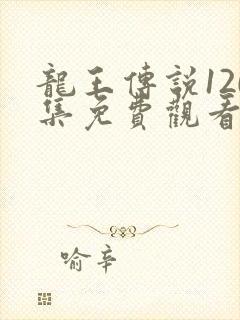 龍王傳說120
集免費觀看
喻辛